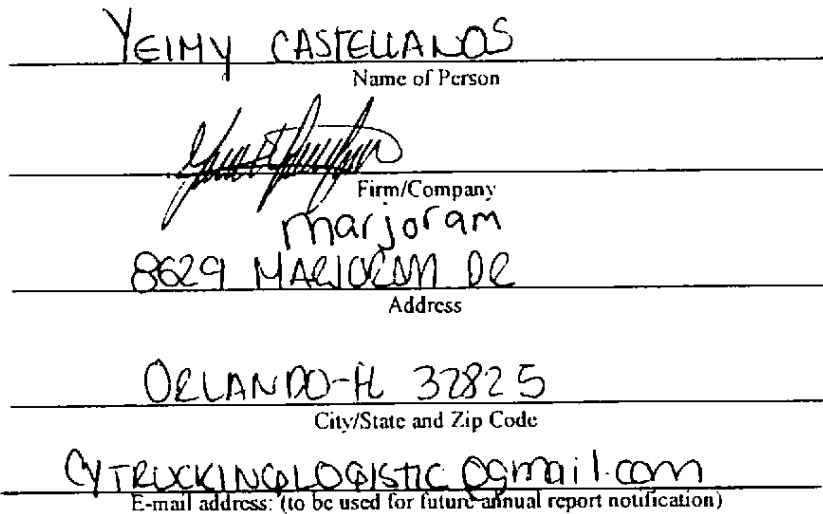 YEIMY CASTELLANOS
Name of Person
Firm/Company
marjoram
8629 MARJORAM DR
Address
ORLANDO-FL 32825
City/State and Zip Code
CYTRUCKINGLOGISTIC@gmail.com
E-mail address: (to be used for future annual report notification)